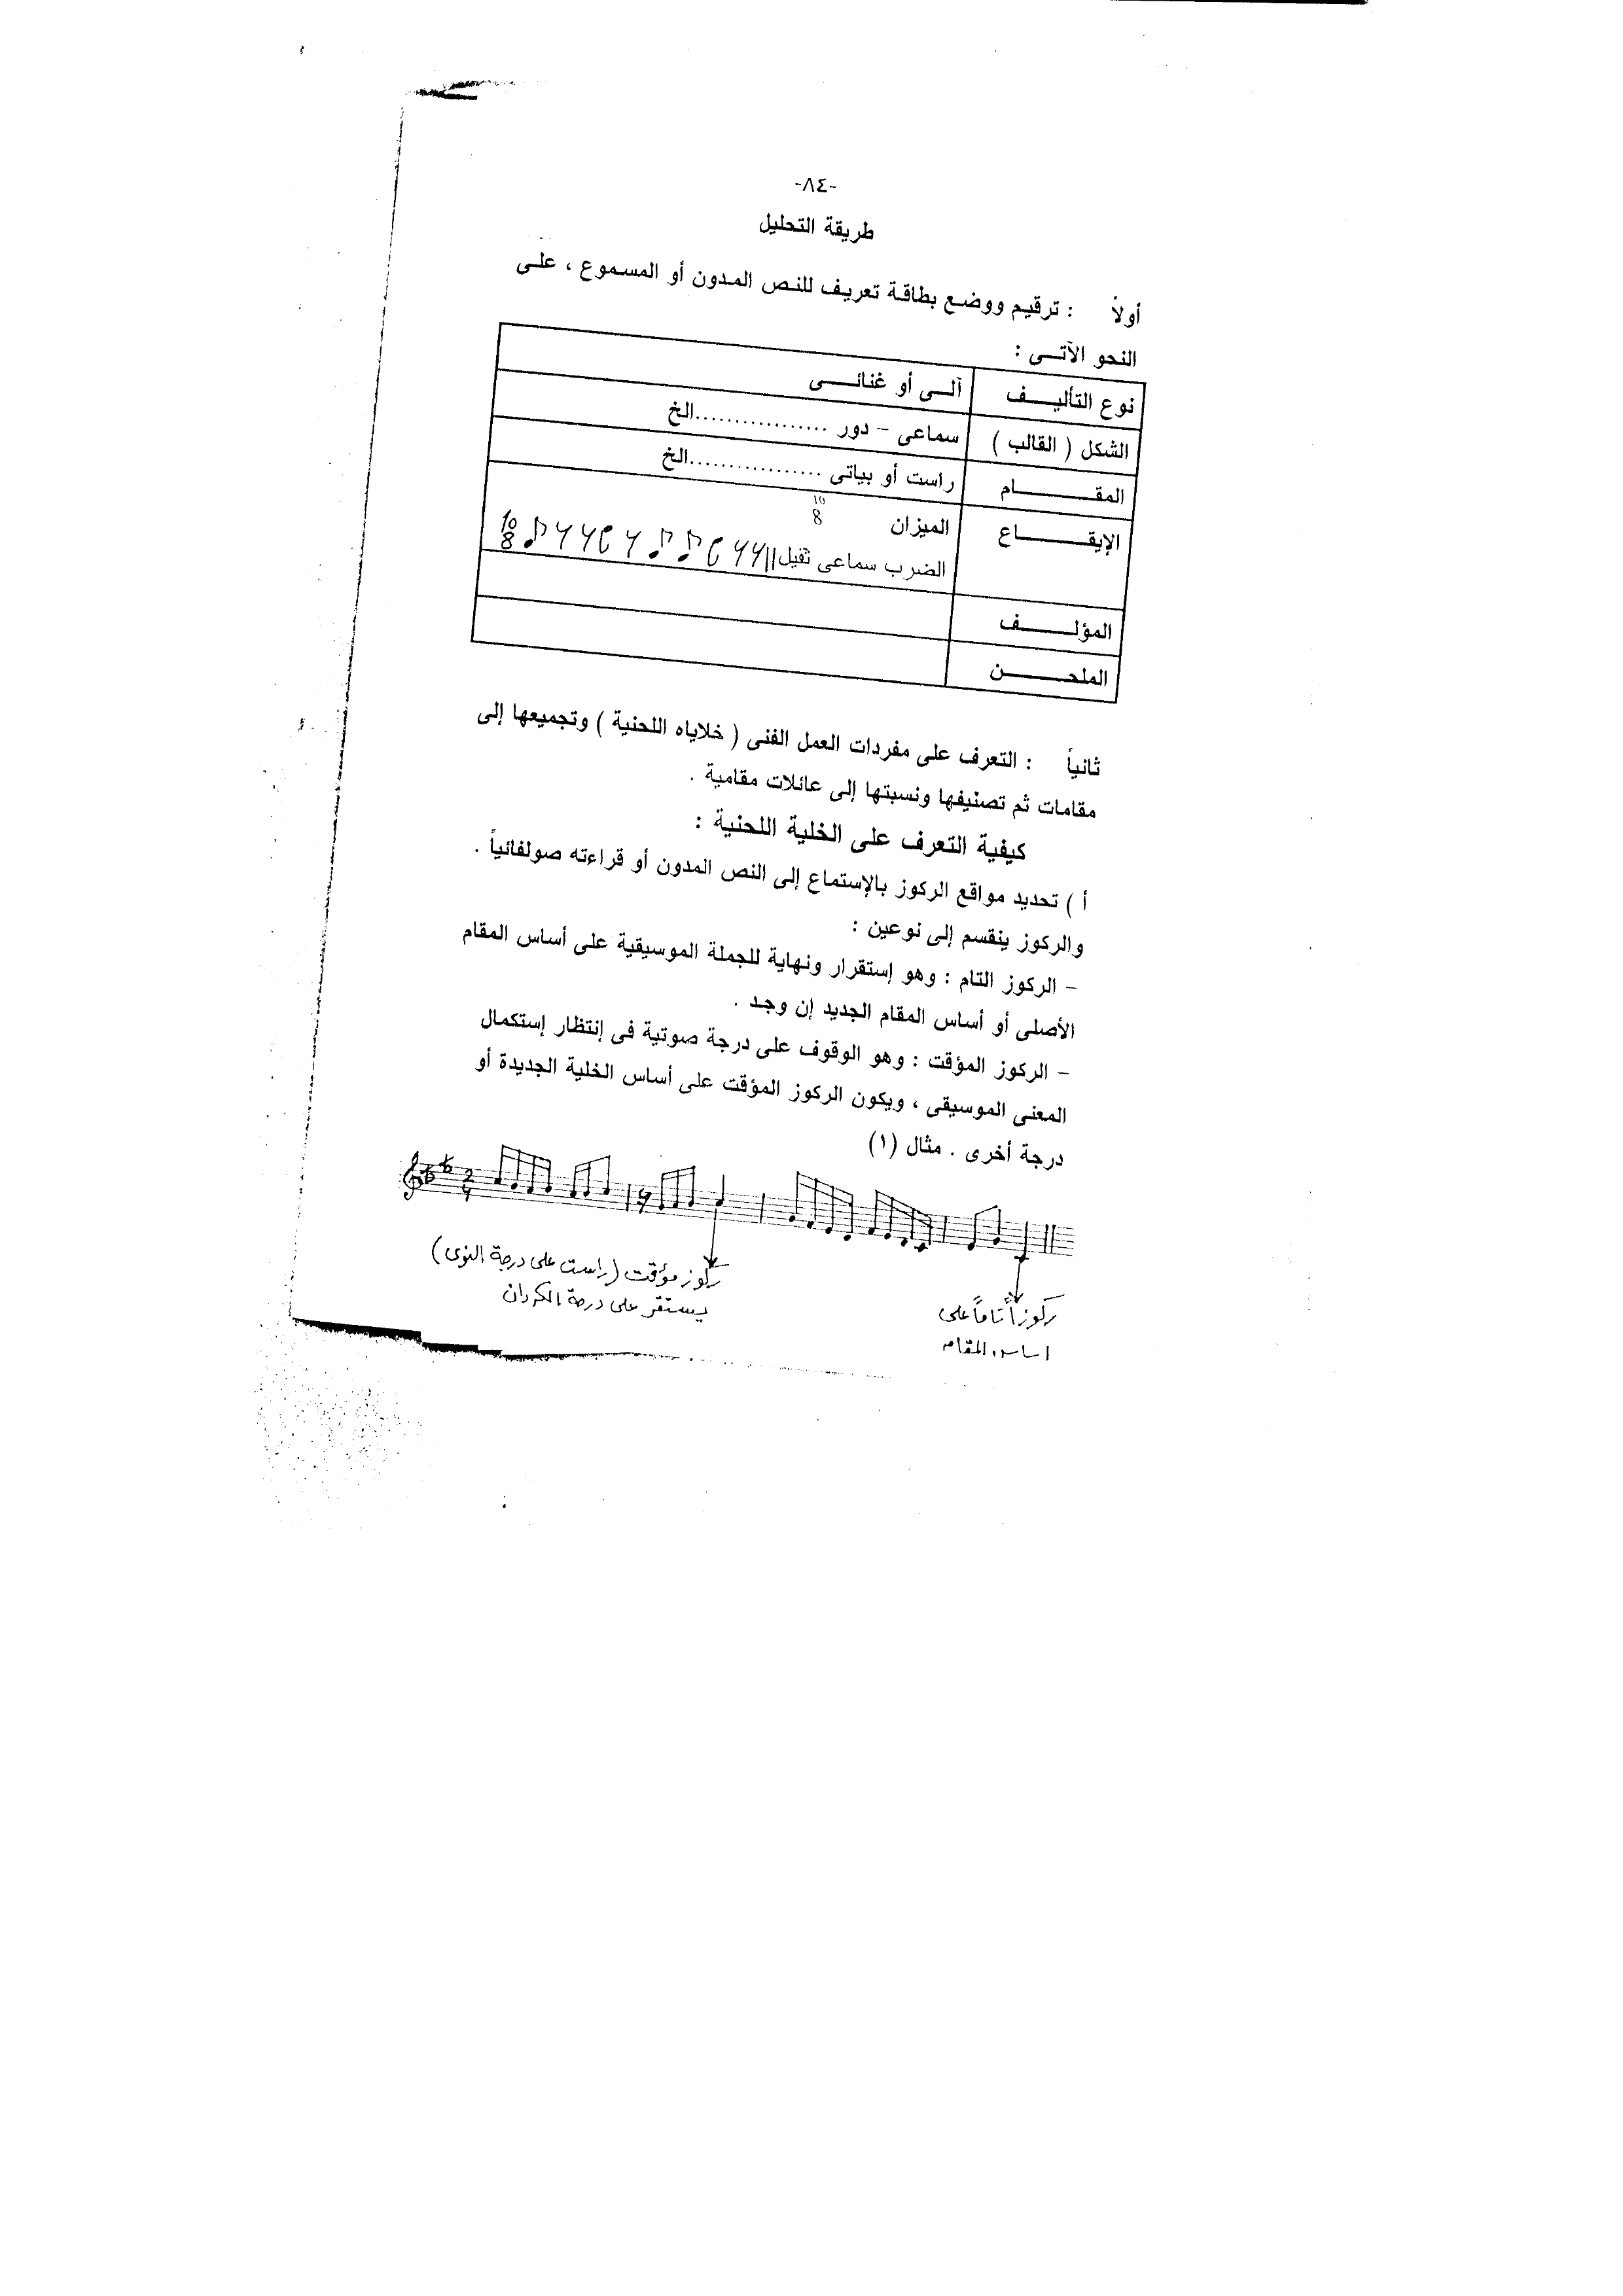 -٨٤-
طريقة التحليل
أولاً : ترقيم ووضع بطاقة تعريف للنص المدون أو المسموع ، على
النحو الآتى :
نوع التأليف آلى أو غنائى
الشكل ( القالب ) سماعى - دور .................الخ
المقام راست أو بياتى .................الخ
الإيقاع الميزان 10/8
الضرب سماعى ثقيل 10/8
المؤلف
الملحن
ثانياً : التعرف على مفردات العمل الفنى ( خلاياه اللحنية ) وتجميعها إلى
مقامات ثم تصنيفها ونسبتها إلى عائلات مقامية .
كيفية التعرف على الخلية اللحنية :
أ ) تحديد مواقع الركوز بالإستماع إلى النص المدون أو قراءته صولفائياً .
والركوز ينقسم إلى نوعين :
- الركوز التام : وهو إستقرار ونهاية للجملة الموسيقية على أساس المقام
الأصلى أو أساس المقام الجديد إن وجد .
- الركوز المؤقت : وهو الوقوف على درجة صوتية فى إنتظار إستكمال
المعنى الموسيقى ، ويكون الركوز المؤقت على أساس الخلية الجديدة أو
درجة أخرى . مثال (١)
2/4
ركوز مؤقت (راست على درجة النوى)
يستقر على درجة الكردان
ركوزاً تاماً على
اساس المقام